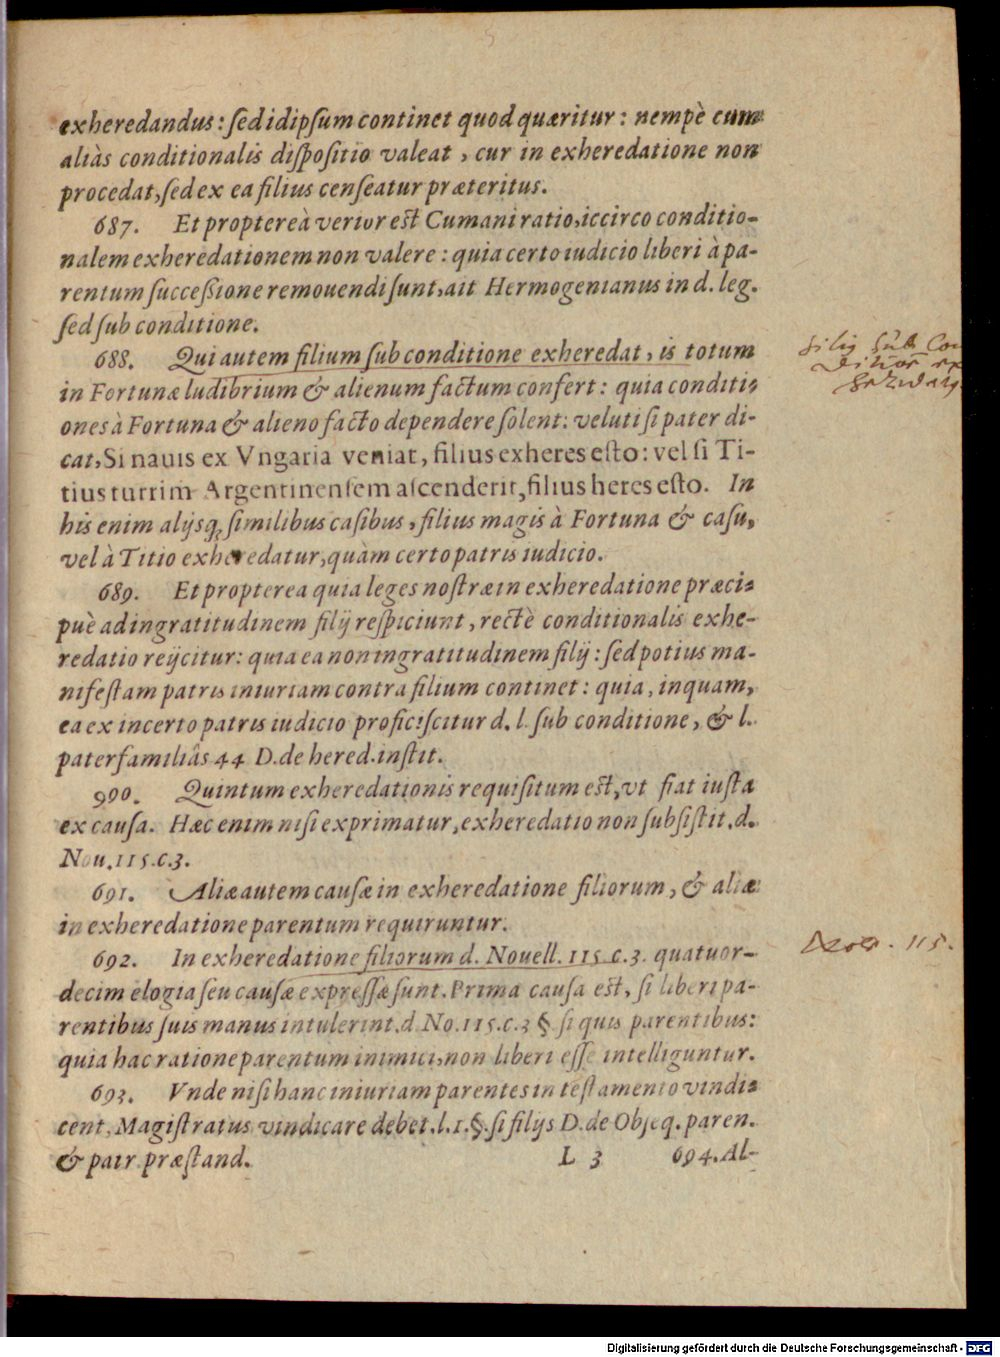 exheredandus: sed id ipsum continet quod quæritur: nempè cum
aliàs conditionalis dispositio valeat, cur in exheredatione non
procedat, sed ex ea filius censeatur præteritus.
687. Et propterea verior est Cumani ratio, iccirco conditio-
nalem exheredationem non valere: quia certo iudicio liberi à pa-
rentum successione remouendi sunt, ait Hermogenianus in d. leg.
sed sub conditione.
688. Qui autem filium sub conditione exheredat, is totum
in Fortunæ ludibrium & alienum factum confert: quia conditi-
ones à Fortuna & alieno facto dependere solent: veluti si pater di-
cat, Si nauis ex Vngaria veniat, filius exheres esto: vel si Ti-
tius turrim Argentinensem ascenderit, filius heres esto. In
his enim alijsq; similibus casibus, filius magis à Fortuna & casu,
vel à Titio exheredatur, quàm certo patris iudicio.
689. Et propterea quia leges nostræ in exheredatione præci-
puè ad ingratitudinem filij respiciunt, rectè conditionalis exhe-
redatio reijcitur: quia ea non ingratitudinem filij: sed potius ma-
nifestam patris iniuriam contra filium continet: quia, inquam,
ea ex incerto patris iudicio proficiscitur d. l. sub conditione, & l.
paterfamiliâs 44 D. de hered. instit.
990. Quintum exheredationis requisitum est, vt fiat iusta
ex causa. Hæc enim nisi exprimatur, exheredatio non subsistit. d.
Nou. 115. c. 3.
691. Aliæ autem causæ in exheredatione filiorum, & aliæ
in exheredatione parentum requiruntur.
692. In exheredatione filiorum d. Nouell. 115 c. 3. quatuor-
decim elogia seu causæ expressæ sunt. Prima causa est, si liberi pa-
rentibus suis manus intulerint. d No. 115. c. 3 §. si quis parentibus:
quia hac ratione parentum inimici, non liberi esse intelliguntur.
693. Vnde nisi hanc iniuriam parentes in testamento vindi-
cent, Magistratus vindicare debet. l. 1. §. si filijs D. de Obseq. paren.
& patr. præstand.
L 3 694. Al-
115.
Digitalisierung gefördert durch die Deutsche Forschungsgemeinschaft - DFG